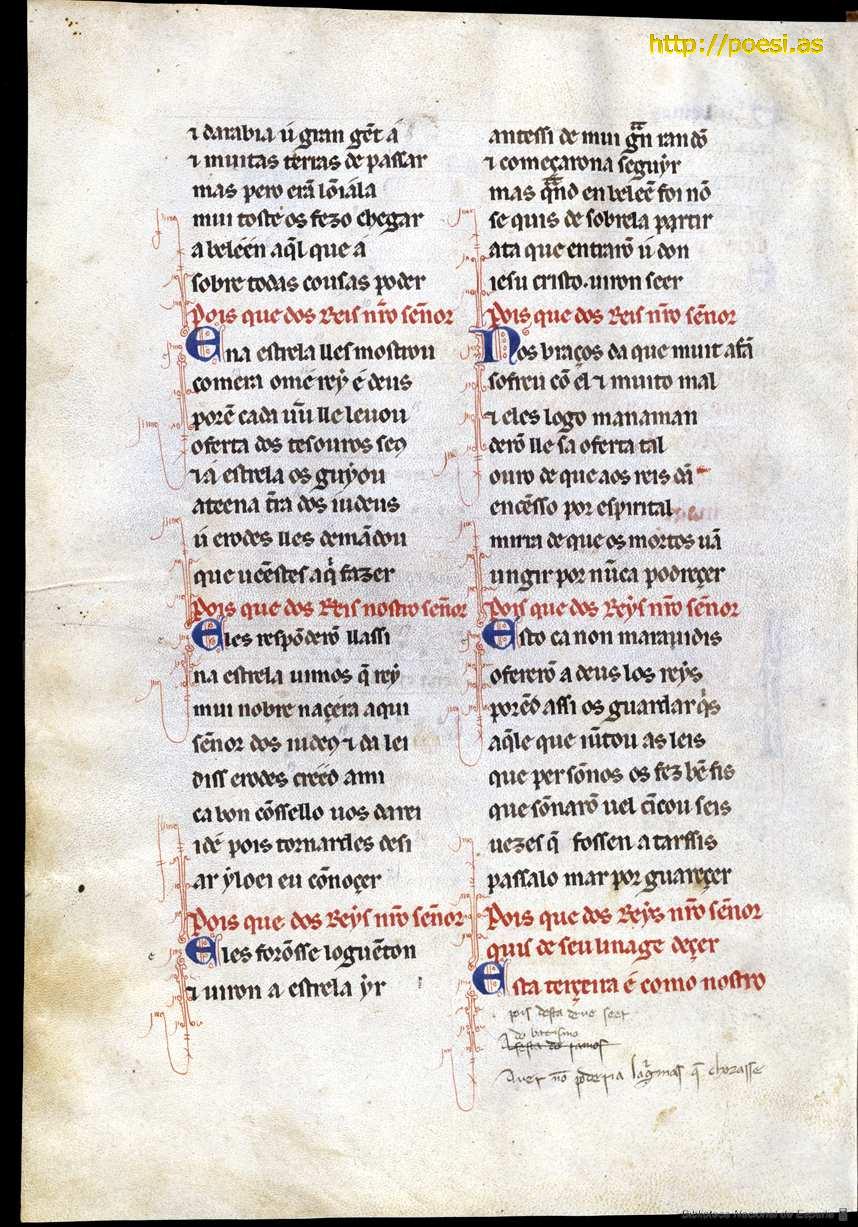 http://poesi.as
⁊ darabia ú gran gẽt á
⁊ muitas terras de passar
mas pero erã lõiála
mui toste os fezo chegar
a beleen aq̃l que á
sobre todas cousas poder
Pois que dos Reis nr̃o señor
Ena estrela lles mostrou
comera om é rey é deus
porẽ cada ũu lle levou
oferta dos tesouros seꝯ
⁊ á estrela os guyou
ateena t̃ra dos iudeus
ú erodes lles demãdou
que veẽstes aq̓ fazer
Pois que dos Reis nostro señor
Eles respõderõ llassi
na estrela vimos q̃ rey
mui nobre naçera aqui
señor dos iudeꝯ ⁊ da lei
diss erodes creed a mi
ca bon cõssello vos darei
idẽ pois tornardes desi
ar ỳloei eu cõnoçer
Pois que dos Reys nr̃o señor
Eles forõsse loguẽton
⁊ viron a estrela yr
antessi de mui grã randõ
⁊ começarona seguyr
mas quãdo en beleẽ foi nõ
se quis de sobrela partir
ata que entrarõ ú don
iesu cristo. viron seer
Pois que dos Reis nr̃o señor
Nos braços da que muit afã
sofreu cõ el ⁊ muito mal
⁊ eles logo manaman
derõ lle sa oferta tal
ouro de que aos reis dã
encẽsso por espirital
mirra de que os mortos vã
ungir por nũca podreçer
Pois que dos Reys nr̃o señor
Esto ca non maravidis
ofererõ a deus los reys
porẽd assi os guardar q̓s
aq̃le que iũtou as leis
que per sõnos os fez bẽ fis
que sõnarõ vel cĩcou seis
vezes q̃ fossen a tarssis
passalo mar por guareçer
Pois que dos Reys nr̃o señor
quis de seu linage deçer
Esta terçeira é como nostro
pois desta deve seer
do batismo
A festa do ramos
Aver nõ poderia lag̃mas q̃ chorasse
Biblioteca Nacional de España